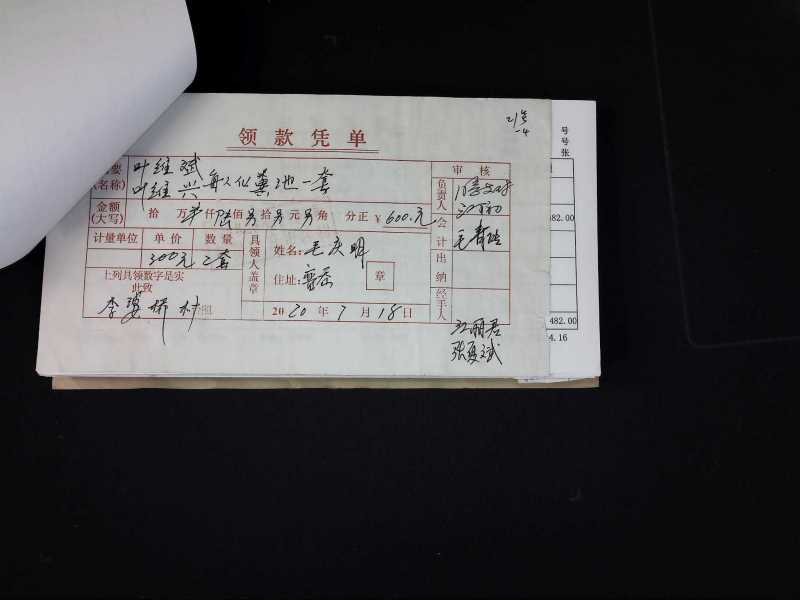 21号
-4
领款凭单
摘要
(名称)
叶维斌
叶维兴 每人化粪池一套
审核
负责人
金额
(大写)
拾 万 仟 陆 佰 另 拾 另 元 另 角 分正 ¥ 600.元
会计
计量单位 单价 数量
300元 2套
具领人盖章
姓名: 毛庆明
住址:
章
出纳
上列具领数字是实
此致
李婆桥村
2020年7月18日
经手人
江丽君
张夏斌
号
号
张
482.00
482.00
4.16